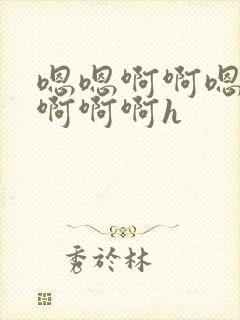 嗯嗯啊啊嗯
啊啊啊h
秀於林